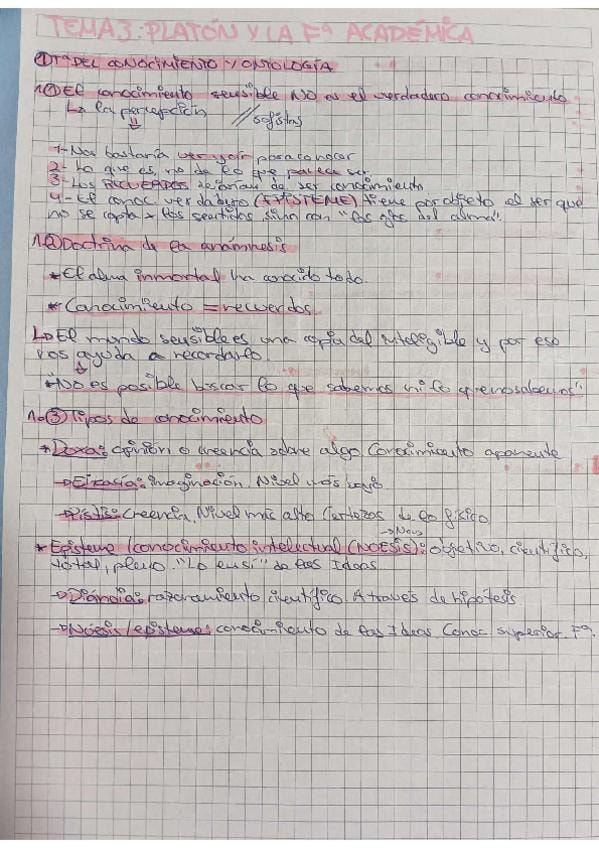 TEMA 3: PLATÓN Y LA Fª ACADÉMICA
① Tª DEL CONOCIMIENTO Y ONTOLOGÍA
1.① El conocimiento sensible NO es el verdadero conocimiento
↳ la percepción // sofistas
⇓
1- Nos bastaría ver y oír para conocer
2- Lo que es, no de lo que parece ser
3- Los RECUERDOS dejarían de ser conocimiento
4- El conoc. verdadero (EPISTEME) tiene por objeto el ser que
no se capta x los sentidos, sino con "los ojos del alma".
1.② Doctrina de la anámnesis
* El alma inmortal ha conocido todo.
* Conocimiento = recuerdos
↳ El mundo sensible es una copia del inteligible y por eso
nos ayuda a recordarlo.
"No es posible buscar lo que sabemos ni lo que no sabemos".
1.③ Tipos de conocimiento
* Doxa: opinión o creencia sobre algo. Conocimiento aparente
→ Eikasía: imaginación. Nivel más bajo
→ Pistis: Creencia. Nivel más alto. Certezas de lo físico
→ Nous
* Episteme / conocimiento intelectual (NOESIS): objetivo, científico,
total, pleno. "Lo en sí" de las Ideas
→ Diánoia: razonamiento científico. A través de hipótesis.
→ Nóesis / episteme: conocimiento de las Ideas. Conoc. superior. Fª.